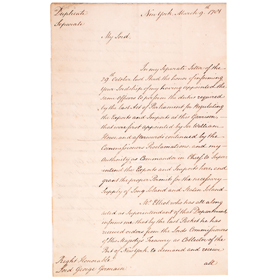 Duplicate
Separate
New York March 9th 1781
My Lord,
In my Separate Letter of the
29th October last I had the honor of informing
your Lordship of my having appointed the
same Officers to perform the duties required
by the last Act of Parliament for Regulating
the Exports and Imports of this Garrison
that was first appointed by Sir William
Howe and afterwards continued by the
Commissioners Proclamations and my
Authority as Commander in Chief to Super
intend the Exports and Imports here and
grant the proper Permits for the necessary
Supply of Long Island and Staten Island.
Mr Elliot who has all along
acted as Superintendent of this Department
informs me that by the last Packet he has
received orders from the Lords Commissioners
of His Majesty's Treasury as Collector of the
Port of New York to demand and receive
Right Honorable
Lord George Germain
all